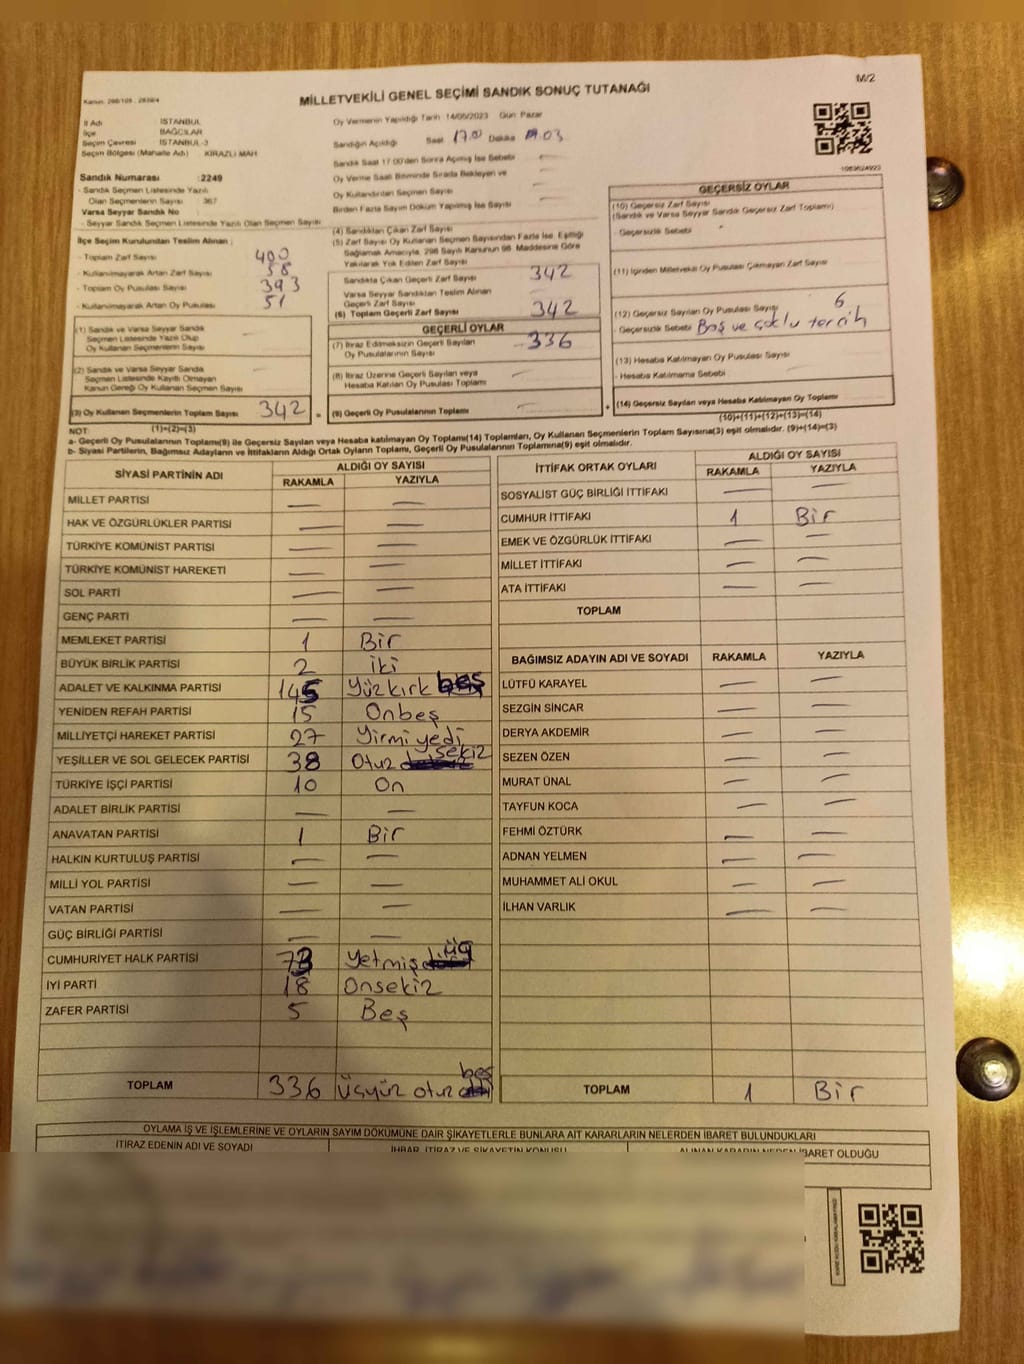 M/2
Kanun: 298/105 - 2839/4
MİLLETVEKİLİ GENEL SEÇİMİ SANDIK SONUÇ TUTANAĞI
İl Adı İSTANBUL
İlçe BAĞCILAR
Seçim Çevresi İSTANBUL-3
Seçim Bölgesi (Mahalle Adı) KİRAZLI MAH
Sandık Numarası : 2249
- Sandık Seçmen Listesinde Yazılı
Olan Seçmenlerin Sayısı : 367
Varsa Seyyar Sandık No
- Seyyar Sandık Seçmen Listesinde Yazılı Olan Seçmen Sayısı
İlçe Seçim Kurulundan Teslim Alınan ;
- Toplam Zarf Sayısı 400
- Kullanılmayarak Artan Zarf Sayısı 58
- Toplam Oy Pusulası Sayısı 393
- Kullanılmayarak Artan Oy Pusulası 51
(1) Sandık ve Varsa Seyyar Sandık
Seçmen Listesinde Yazılı Olup
Oy Kullanan Seçmenlerin Sayısı —
(2) Sandık ve Varsa Seyyar Sandık
Seçmen Listesinde Kayıtlı Olmayan
Kanun Gereği Oy Kullanan Seçmen Sayısı —
(3) Oy Kullanan Seçmenlerin Toplam Sayısı 342 =
(1)+(2)=(3)
Oy Vermenin Yapıldığı Tarih 14/05/2023 Gün Pazar
Sandığın Açıldığı Saat 17.00 Dakika 03
Sandık Saat 17:00'den Sonra Açılmış İse Sebebi —
Oy Verme Saati Bitiminde Sırada Bekleyen ve —
Oy Kullandırılan Seçmen Sayısı —
Birden Fazla Sayım Döküm Yapılmış İse Sayısı —
(4) Sandıktan Çıkan Zarf Sayısı
(5) Zarf Sayısı Oy Kullanan Seçmen Sayısından Fazla İse, Eşitliği
Sağlamak Amacıyla, 298 Sayılı Kanunun 98. Maddesine Göre
Yakılarak Yok Edilen Zarf Sayısı
Sandıkta Çıkan Geçerli Zarf Sayısı 342
Varsa Seyyar Sandıktan Teslim Alınan
Geçerli Zarf Sayısı —
(6) Toplam Geçerli Zarf Sayısı 342
GEÇERLİ OYLAR
(7) İtiraz Edilmeksizin Geçerli Sayılan
Oy Pusulalarının Sayısı 336
(8) İtiraz Üzerine Geçerli Sayılan veya
Hesaba Katılan Oy Pusulası Toplamı —
(9) Geçerli Oy Pusulalarının Toplamı — +
1063624923
GEÇERSİZ OYLAR
(10) Geçersiz Zarf Sayısı
(Sandık ve Varsa Seyyar Sandık Geçersiz Zarf Toplamı)
- Geçersizlik Sebebi
(11) İçinden Milletvekili Oy Pusulası Çıkmayan Zarf Sayısı
(12) Geçersiz Sayılan Oy Pusulası Sayısı 6
- Geçersizlik Sebebi Boş ve çoklu tercih
(13) Hesaba Katılmayan Oy Pusulası Sayısı
- Hesaba Katılmama Sebebi —
(14) Geçersiz Sayılan veya Hesaba Katılmayan Oy Toplamı —
(10)+(11)+(12)+(13)=(14)
NOT:
a- Geçerli Oy Pusulalarının Toplamı(9) ile Geçersiz Sayılan veya Hesaba katılmayan Oy Toplamı(14) Toplamları, Oy Kullanan Seçmenlerin Toplam Sayısına(3) eşit olmalıdır. (9)+(14)=(3)
b- Siyasi Partilerin, Bağımsız Adayların ve İttifakların Aldığı Ortak Oyların Toplamı, Geçerli Oy Pusulalarının Toplamına(9) eşit olmalıdır.
SİYASİ PARTİNİN ADI ALDIĞI OY SAYISI
RAKAMLA YAZIYLA
MİLLET PARTİSI — —
HAK VE ÖZGÜRLÜKLER PARTİSİ — —
TÜRKİYE KOMÜNİST PARTİSI — —
TÜRKİYE KOMÜNİST HAREKETİ — —
SOL PARTİ — —
GENÇ PARTİ — —
MEMLEKET PARTİSİ 1 Bir
BÜYÜK BİRLİK PARTİSİ 2 iki
ADALET VE KALKINMA PARTİSİ 145 Yüzkırk beş
YENİDEN REFAH PARTİSİ 15 Onbeş
MİLLİYETÇİ HAREKET PARTİSİ 27 Yirmi yedi
YEŞİLLER VE SOL GELECEK PARTİSİ 38 Otuz sekiz
TÜRKİYE İŞÇİ PARTİSİ 10 On
ADALET BİRLİK PARTİSİ — —
ANAVATAN PARTİSİ 1 Bir
HALKIN KURTULUŞ PARTİSİ — —
MİLLİ YOL PARTİSİ — —
VATAN PARTİSİ — —
GÜÇ BİRLİĞİ PARTİSİ — —
CUMHURİYET HALK PARTİSİ 73 Yetmiş üç
İYİ PARTİ 18 Onsekiz
ZAFER PARTİSİ 5 Beş
TOPLAM 336 Üçyüz otuz beş
İTTİFAK ORTAK OYLARI ALDIĞI OY SAYISI
RAKAMLA YAZIYLA
SOSYALİST GÜÇ BİRLİĞİ İTTİFAKI — —
CUMHUR İTTİFAKI 1 Bir
EMEK VE ÖZGÜRLÜK İTTİFAKI — —
MİLLET İTTİFAKI — —
ATA İTTİFAKI — —
TOPLAM
BAĞIMSIZ ADAYIN ADI VE SOYADI RAKAMLA YAZIYLA
LÜTFÜ KARAYEL — —
SEZGİN SİNCAR — —
DERYA AKDEMİR — —
SEZEN ÖZEN — —
MURAT ÜNAL — —
TAYFUN KOCA — —
FEHMİ ÖZTÜRK — —
ADNAN YELMEN — —
MUHAMMET ALİ OKUL — —
İLHAN VARLIK — —
TOPLAM 1 Bir
OYLAMA İŞ VE İŞLEMLERİNE VE OYLARIN SAYIM DÖKÜMÜNE DAİR ŞİKAYETLERLE BUNLARA AİT KARARLARIN NELERDEN İBARET BULUNDUKLARI
İTİRAZ EDENİN ADI VE SOYADI İHBAR, İTİRAZ VE ŞİKAYETİN KONUSU ALINAN KARARIN NEDEN İBARET OLDUĞU